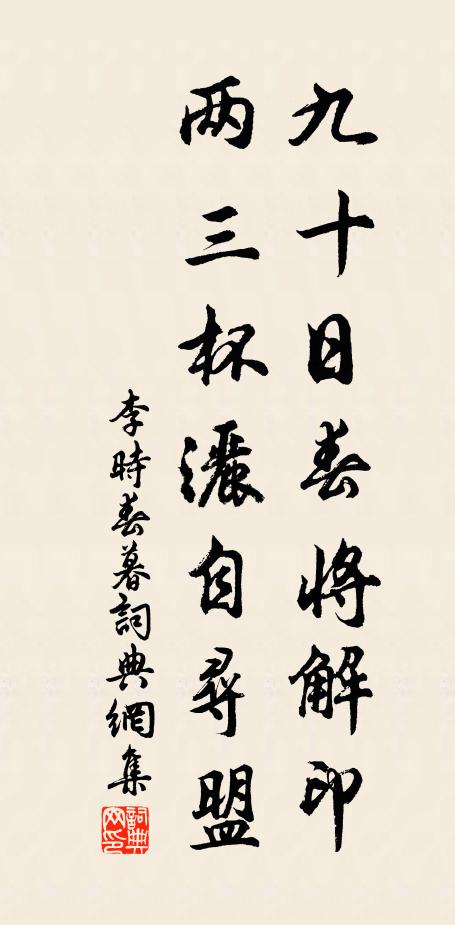 九十日春將解印
两三杯灑自尋盟
李時春暮詞典網集
詞典網印